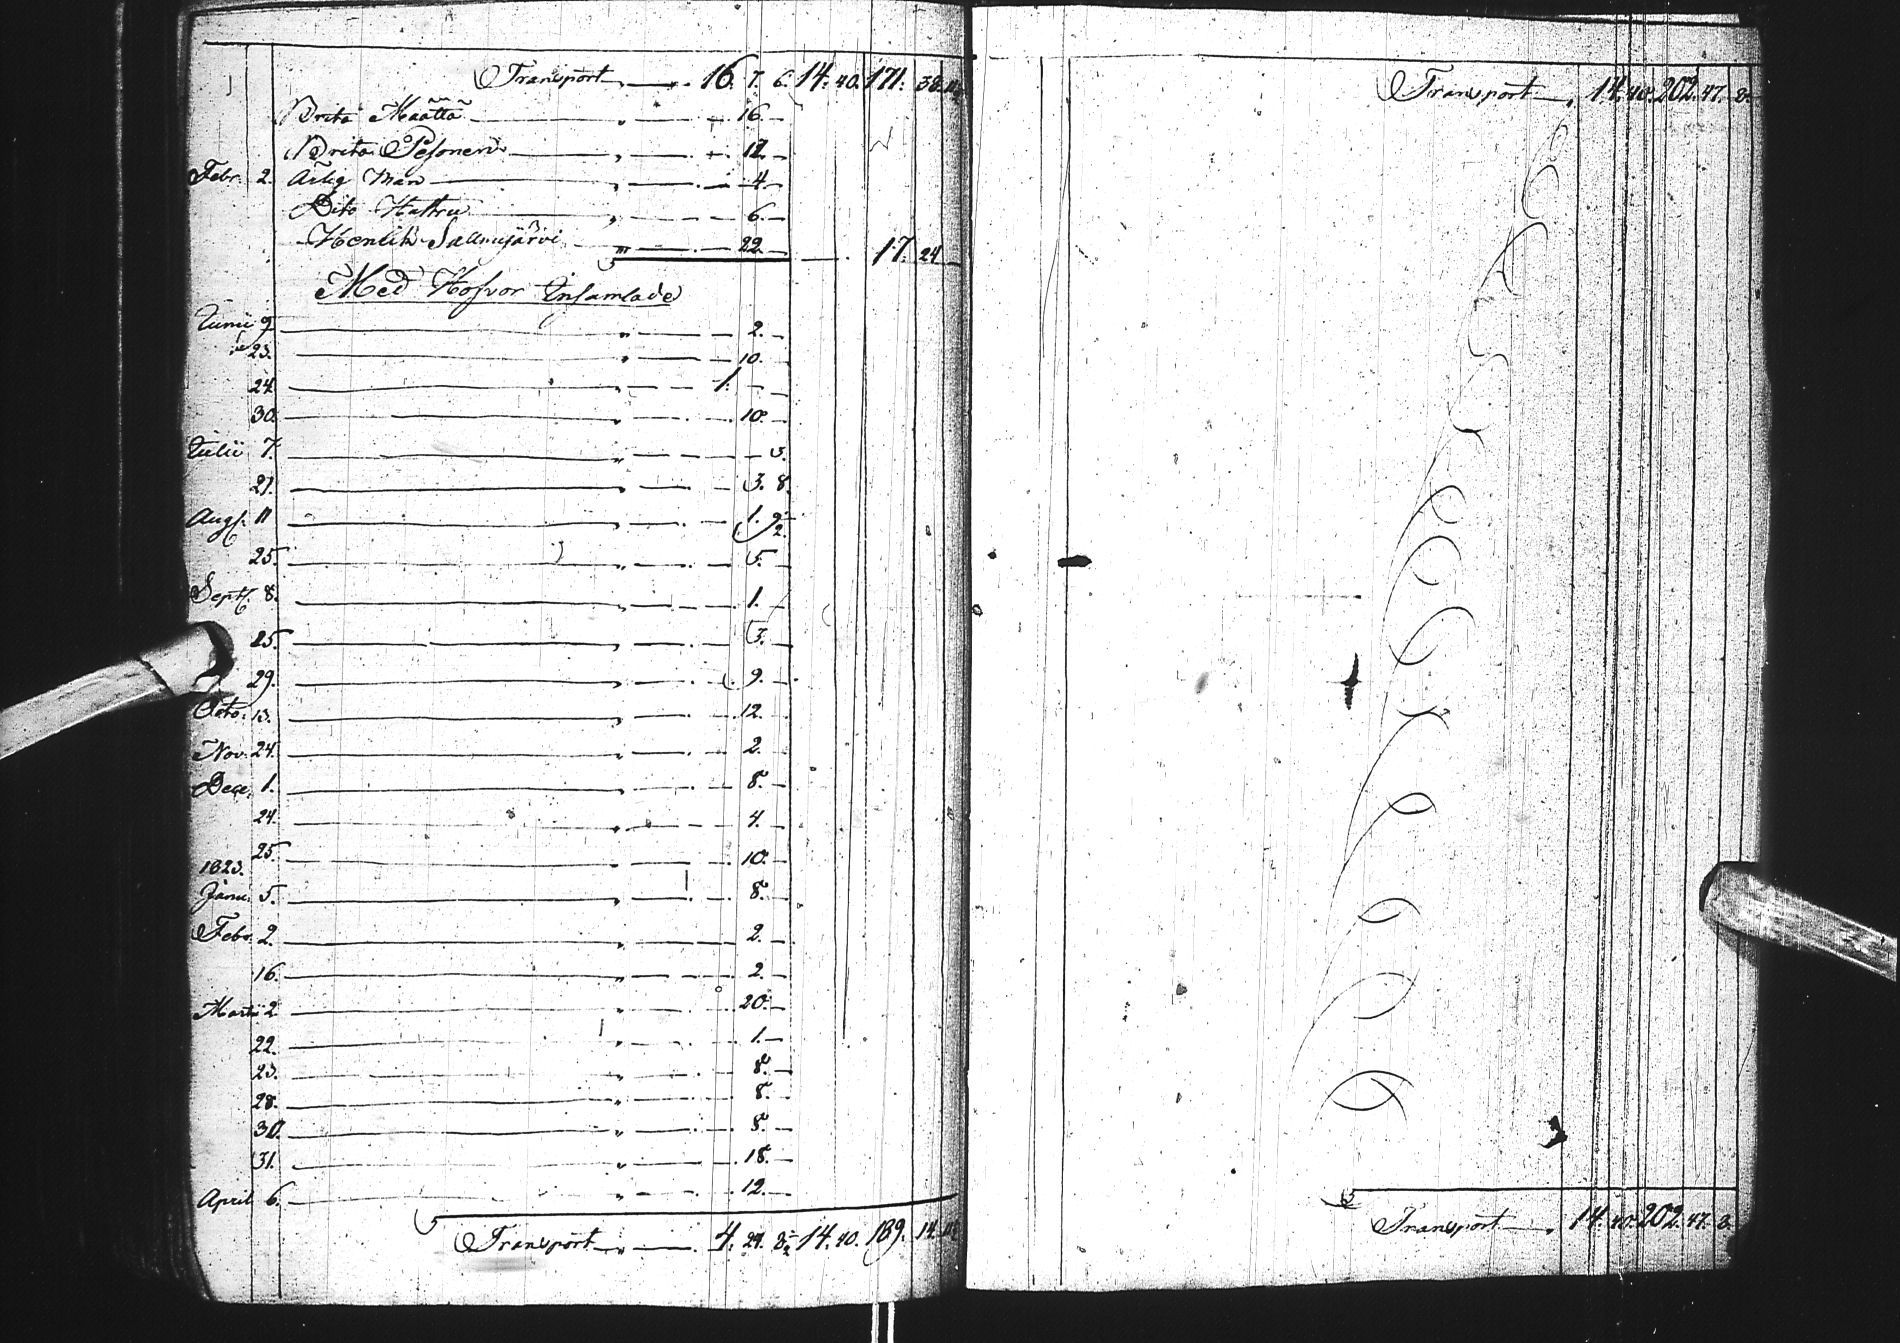 Transport 16. 7. 6. 14. 40. 171. 38.
Brita Määttä 16.
Brita Pesonen 12.
Febr. 2. Ärlig Man 4
Dito Hustru 6.
Henrik Sallmujärvi 22. 17. 24
Med Hofvor Insamlade
Junii 9. 2.
23. 10.
24. 1.
30. 10.
Julii 7. 3.
21. 3. 8.
Aug. 11 1.
25. 5.
Sept. 8. 1.
25. 3.
29. 9.
Octo. 13. 12.
Nov. 24. 2.
Dece. 1. 8.
24. 4.
25. 10.
1823.
Janu. 5. 8.
Febr. 2. 2.
16. 2.
Martii 2. 20.
22. 1.
23. 8.
28. 8.
30. 8.
31. 18.
April 6. 12.
Transport 4. 21. 14. 40. 189. 14.
Transport 14. 40. 202. 47. 8.
Transport 14. 40. 202. 47. 8.